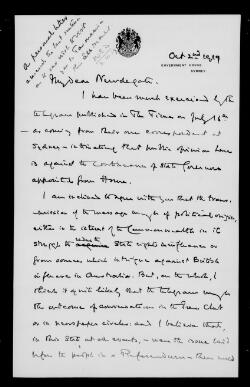 A personal letter
Oct 2nd 1919
GOVERNMENT HOUSE
SYDNEY
My dear Newdegate,
I have been much exercised by the
telegram published in The Times on July 16th
as coming from their own correspondent at
Sydney - intimating that public opinion here
is against the continuance of State Governors
appointed from Home.
I am inclined to agree with you that the trans-
mission of the message may be of political origin,
either in the interest of the Commonwealth in its
struggle to State rights & influence or
from sources which intrigue against British
influence in Australia. But, on the whole, I
think it quite likely that the telegram may be
the outcome of conversations in the Club
or in newspaper circles: and I believe that,
in this State at all events, - were the issue laid
before the people in a Referendum - there would